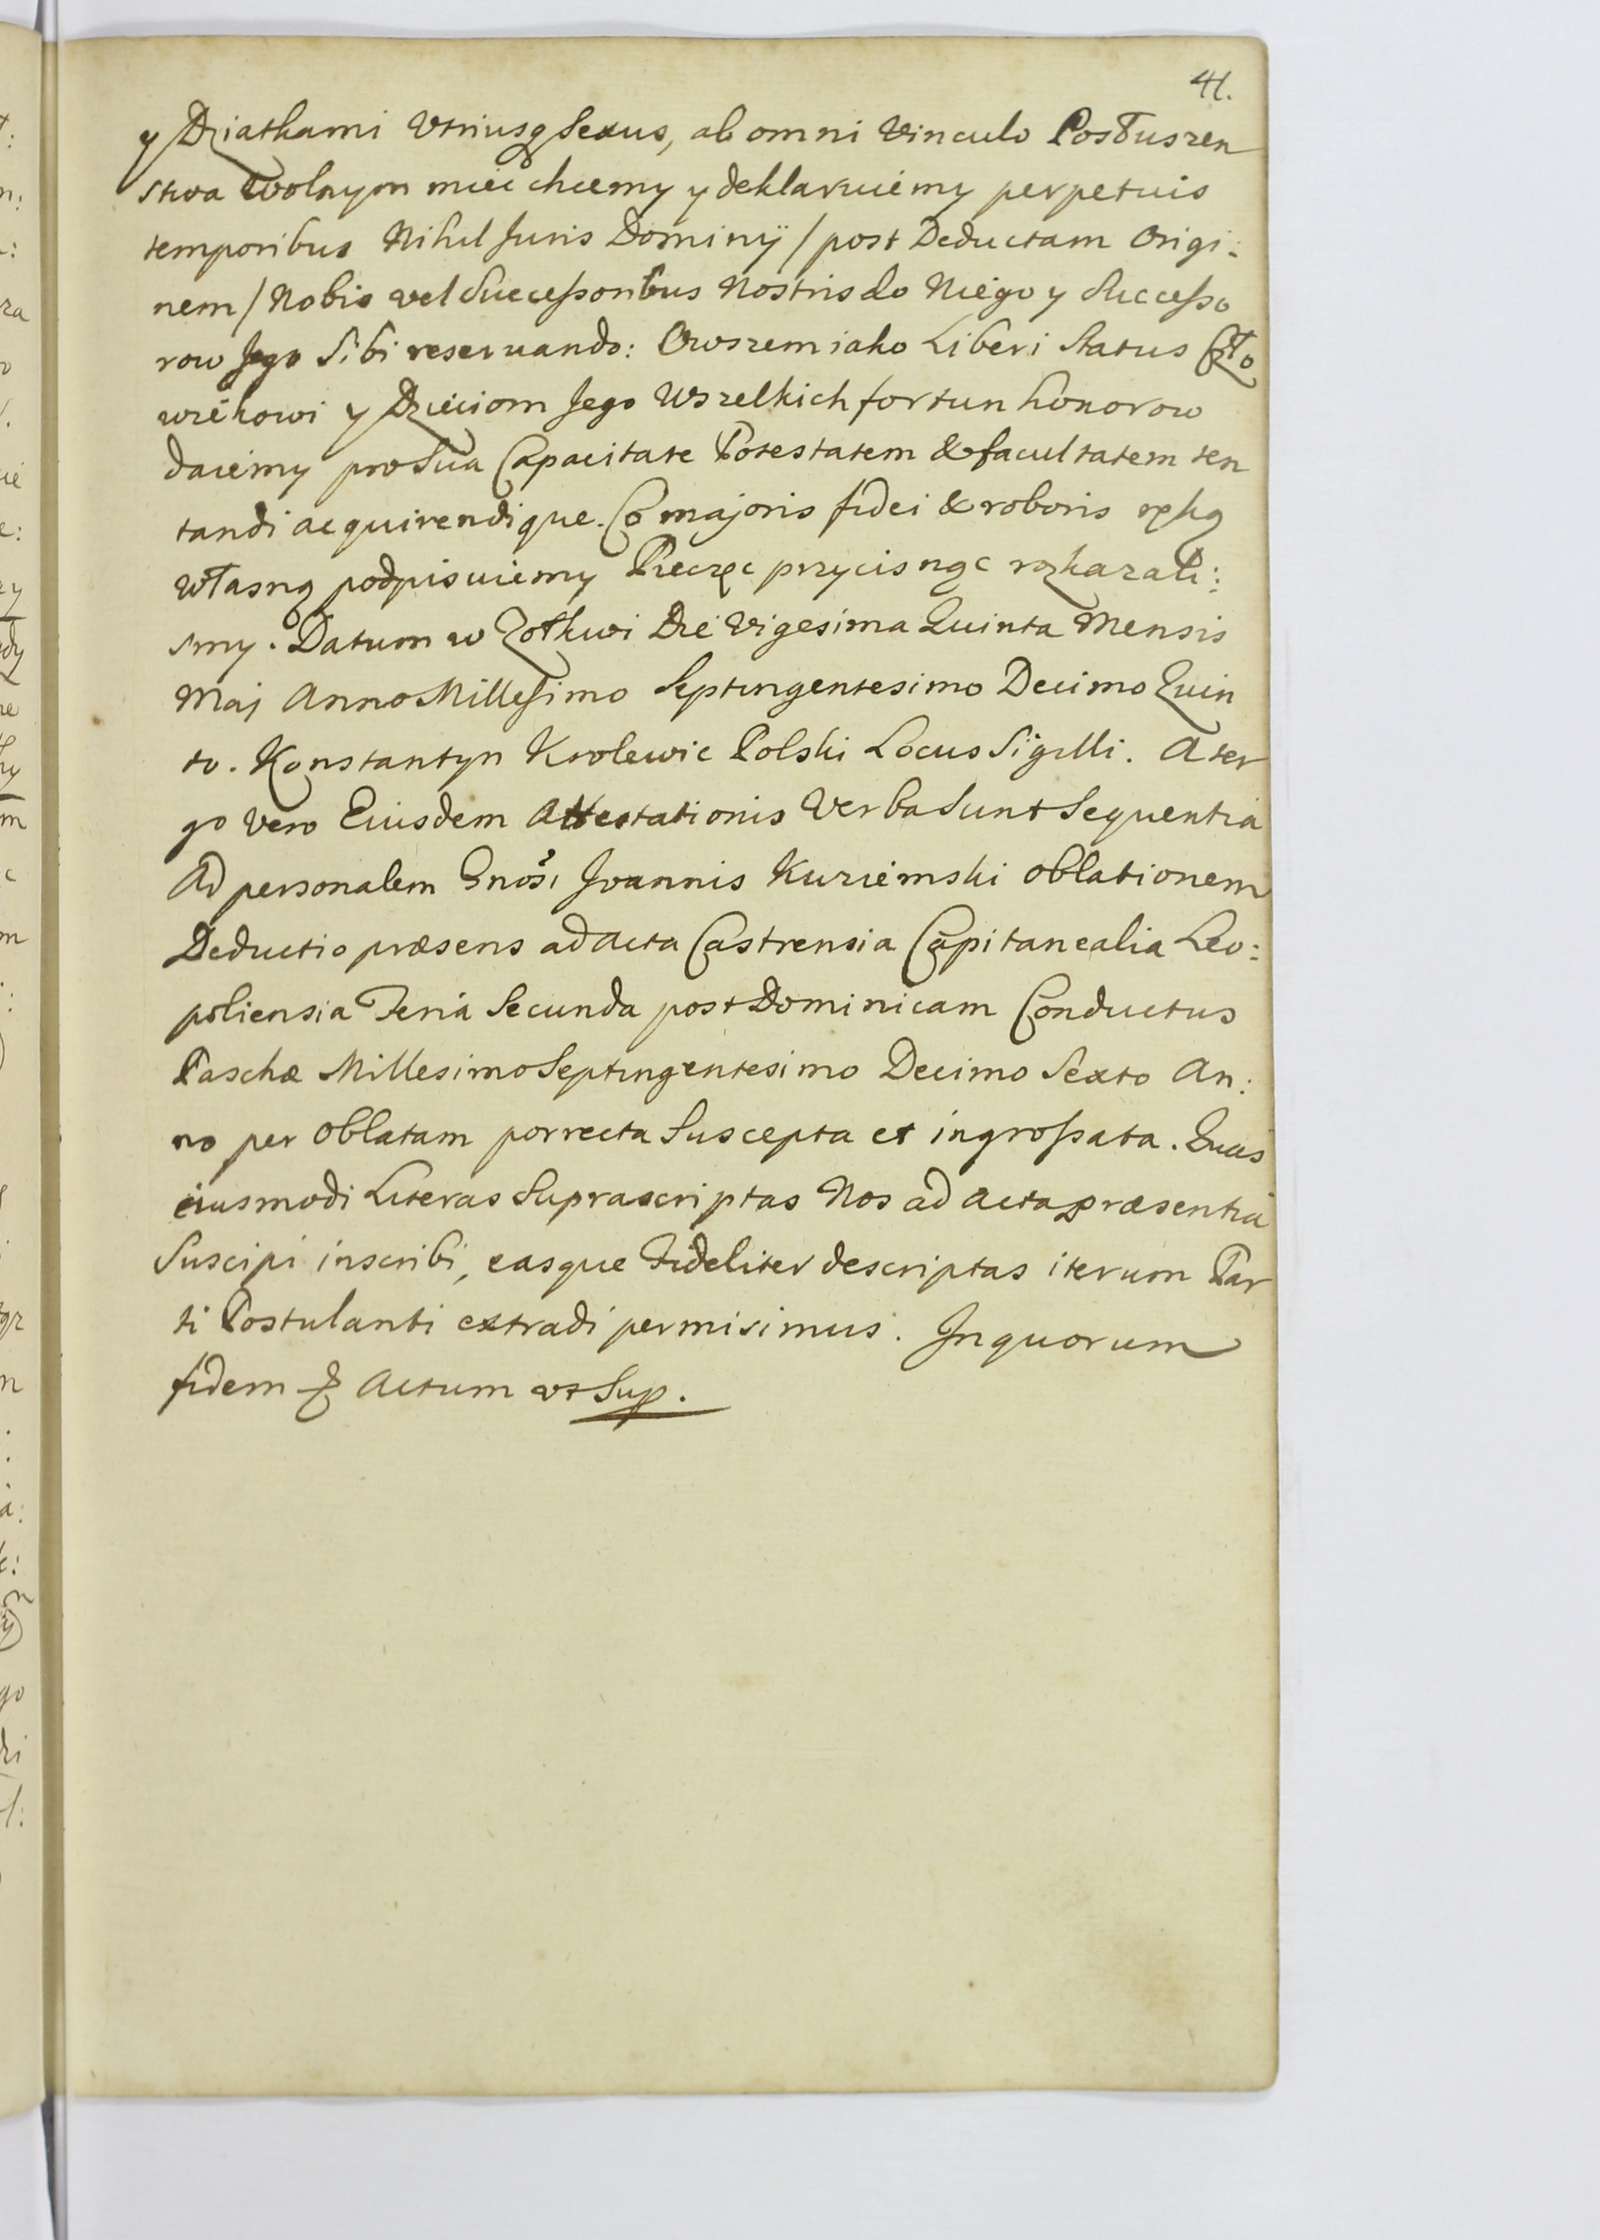 41.
y Dziatkami Utriusq Sexus, ab omni Vinculo Posłuszen
stwa Wolnym mieć chcemy y deklaruiemy perpetuis
temporibus Nihil Juris Dominij / post Deductam Origi:
nem / Nobis vel Successoribus Nostris do Niego y Successo
row Jego Sibi reservando: Owszem iako Liberi Status Czło
wiekowi y Dzieciom Jego Wszelkich fortun honorow
daiemy pro Sua Capacitate Potestatem & facultatem ten
tandi acquirendique. Co majoris fidei & roboris ręką
własną podpisuiemy Pieczęc przycisnąc rozkazali:
smy. Datum w Zołkwi Die Vigesima Quinta Mensis
Maj Anno Millesimo Septingentesimo Decimo Quin
to. Konstantyn Krolewic Polski Locus Sigilli. A ter
go Vero Eiusdem Attestationis Verba Sunt Sequentia
Ad personalem Gnosi Joannis Kuziemski oblationem
Deductio præsens ad Acta Castrensia Capitanealia Leo:
poliensia Feria Secunda post Dominicam Conductus
Paschæ Millesimo Septingentesimo Decimo Sexto An:
no per Oblatam porrecta Suscepta et ingrossata. Quas
eiusmodi Literas Suprascriptas Nos ad Acta præsentia
Suscipi inscribi, easque Fideliter descriptas iterum Par
ti Postulanti extradi permisimus. In quorum
fidem & Actum ut Sup.